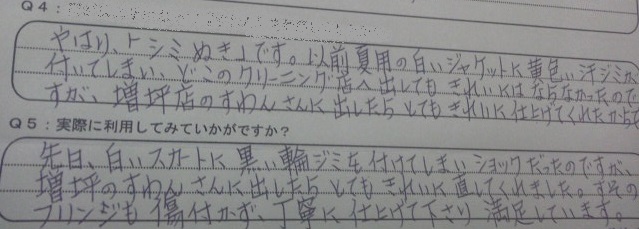 Q4:
やはり、「シミぬき」です。以前夏用の白いジャケットに黄色い汗ジミが
付いてしまい、どこのクリーニング店へ出しても きれいにはならなかったので
すが、増坪店のすわんさんに出したら とてもきれいに仕上げてくれたからで
Q5:実際に利用してみていかがですか?
先日、白いスカートに黒い輪ジミを付けてしまいショックだったのですが、
増坪のすわんさんに出したら とてもきれいに直してくれました。すその
フリンジも傷付かず、丁寧に仕上げて下さり満足しています。